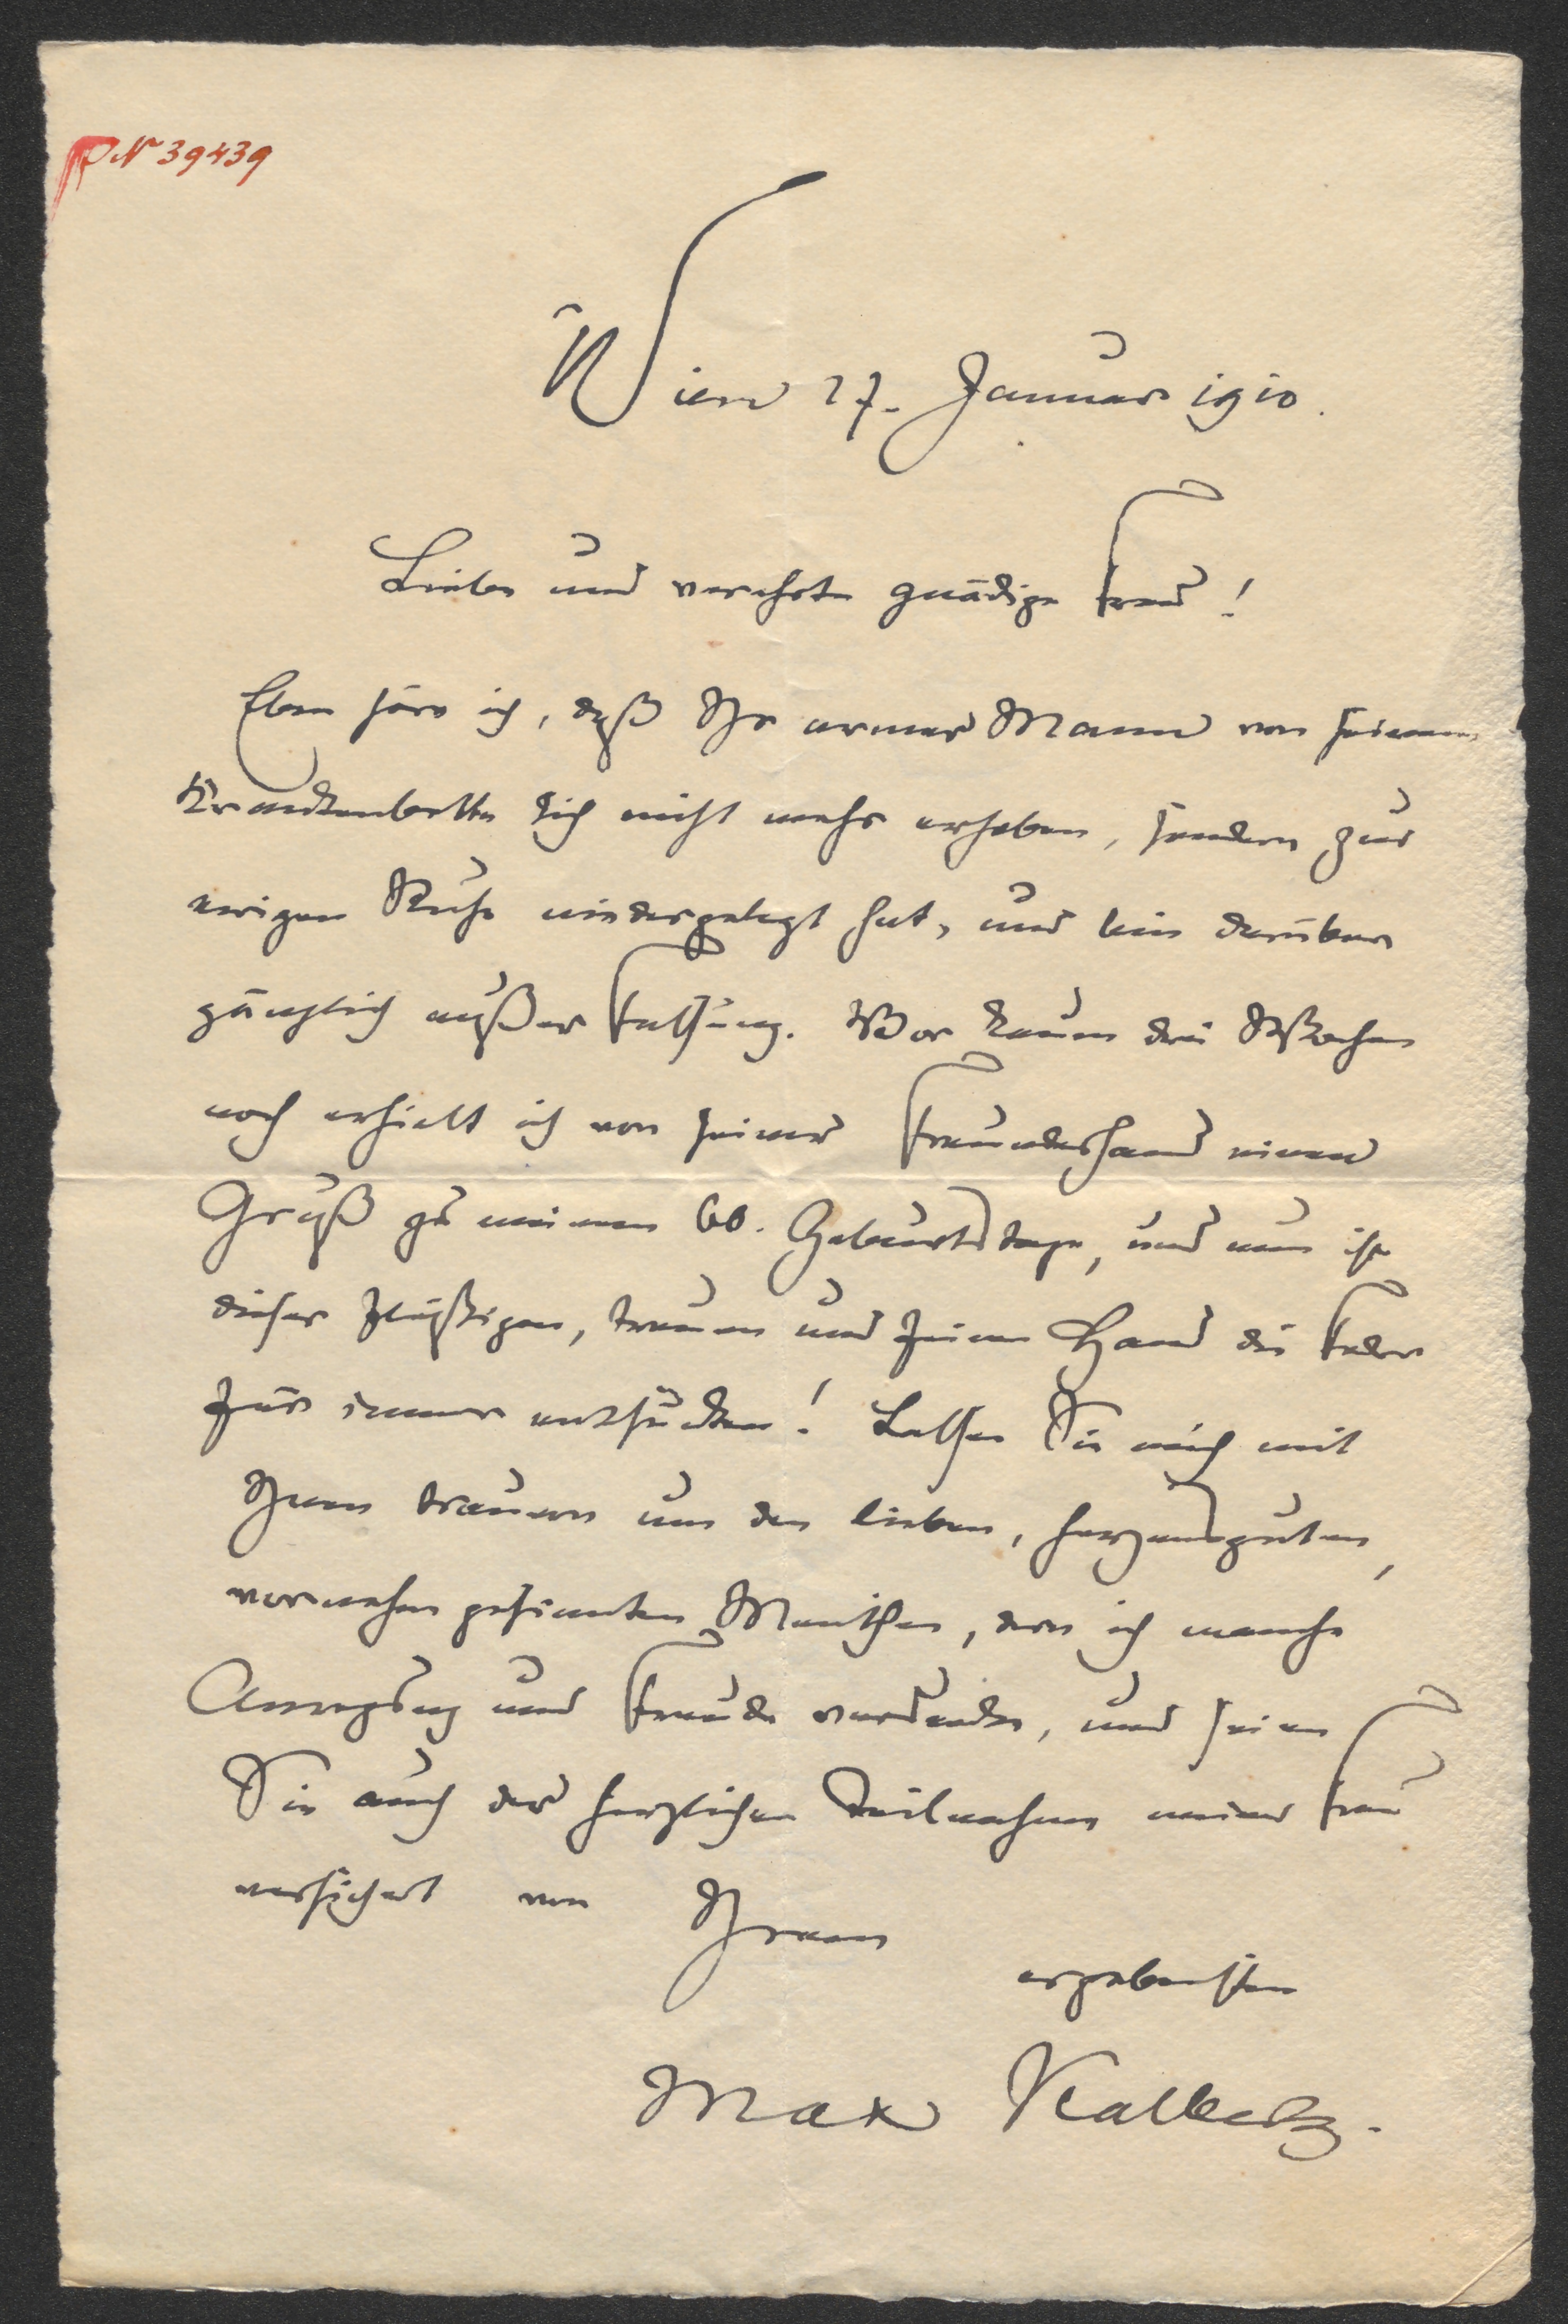 N 39439
Wien 27. Januar 1910.
Liebe und verehrte gnädige Frau!
Eben höre ich, daß Ihr armer Mann von seinem
Krankenbette sich nicht mehr erheben, sondern zur
ewigen Ruhe niedergelegt hat, und bin darüber
gänzlich außer Fassung. Vor kaum drei Wochen
noch erhielt ich von seiner Freundeshand einen
Gruß zu meinem 60. Geburtstage, und nun ist
dieser fleißigen, treuen und feinen Hand die Feder
für immer entsunken! Lassen Sie mich mit
Ihnen trauern um den lieben, herzensguten,
vornehm gesinnten Menschen, dem ich manche
Anregung und Freude verdanke, und seien
Sie auch der herzlichen Teilnahme meiner Frau
versichert von Ihrem
ergebensten
Max Kalbeck.